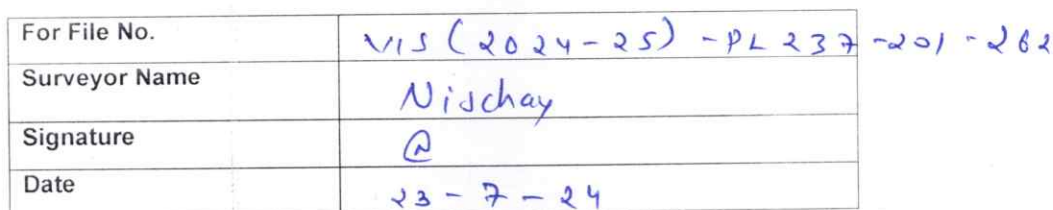 For File No. VIS (2024-25) - PL237-201-262
Surveyor Name Nischay
Signature
Date 23-7-24